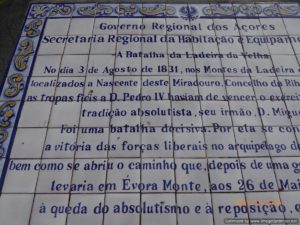 Governo Regional dos Açores
Secretaria Regional da Habitação e Equipam
A Batalha da Ladeira da Velha
No dia 3 de Agosto de 1831, nos Montes da Ladeira
localizados a Nascente deste Miradouro, Concelho da Rib
as tropas fiéis a D. Pedro IV haviam de vencer o exérci
tradição absolutista, seu irmão, D. Migu
Foi uma batalha decisiva. Por ela se con
a vitória das forças liberais no arquipélago d
bem como se abriu o caminho que, depois de uma g
levaria em Évora Monte, aos 26 de Mai
à queda do absolutismo e à reposição, e